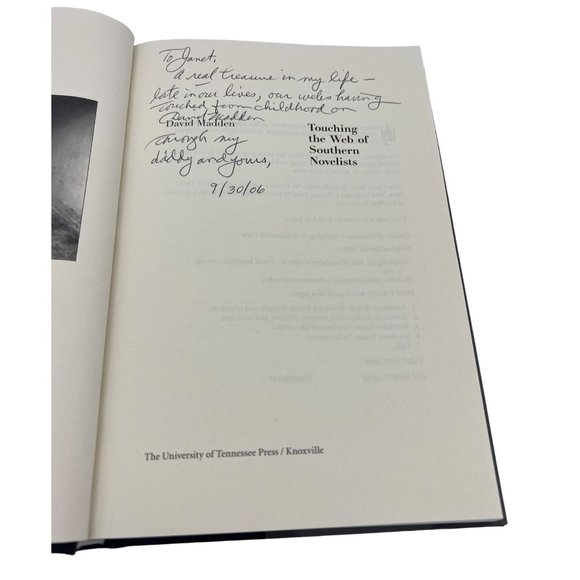 To Janet,
a real treasure in my life —
late in our lives, our webs having
touched from childhood on
David Madden
David Madden
through my
daddy and yours,
9/30/06
Touching
the Web of
Southern
Novelists
The University of Tennessee Press / Knoxville